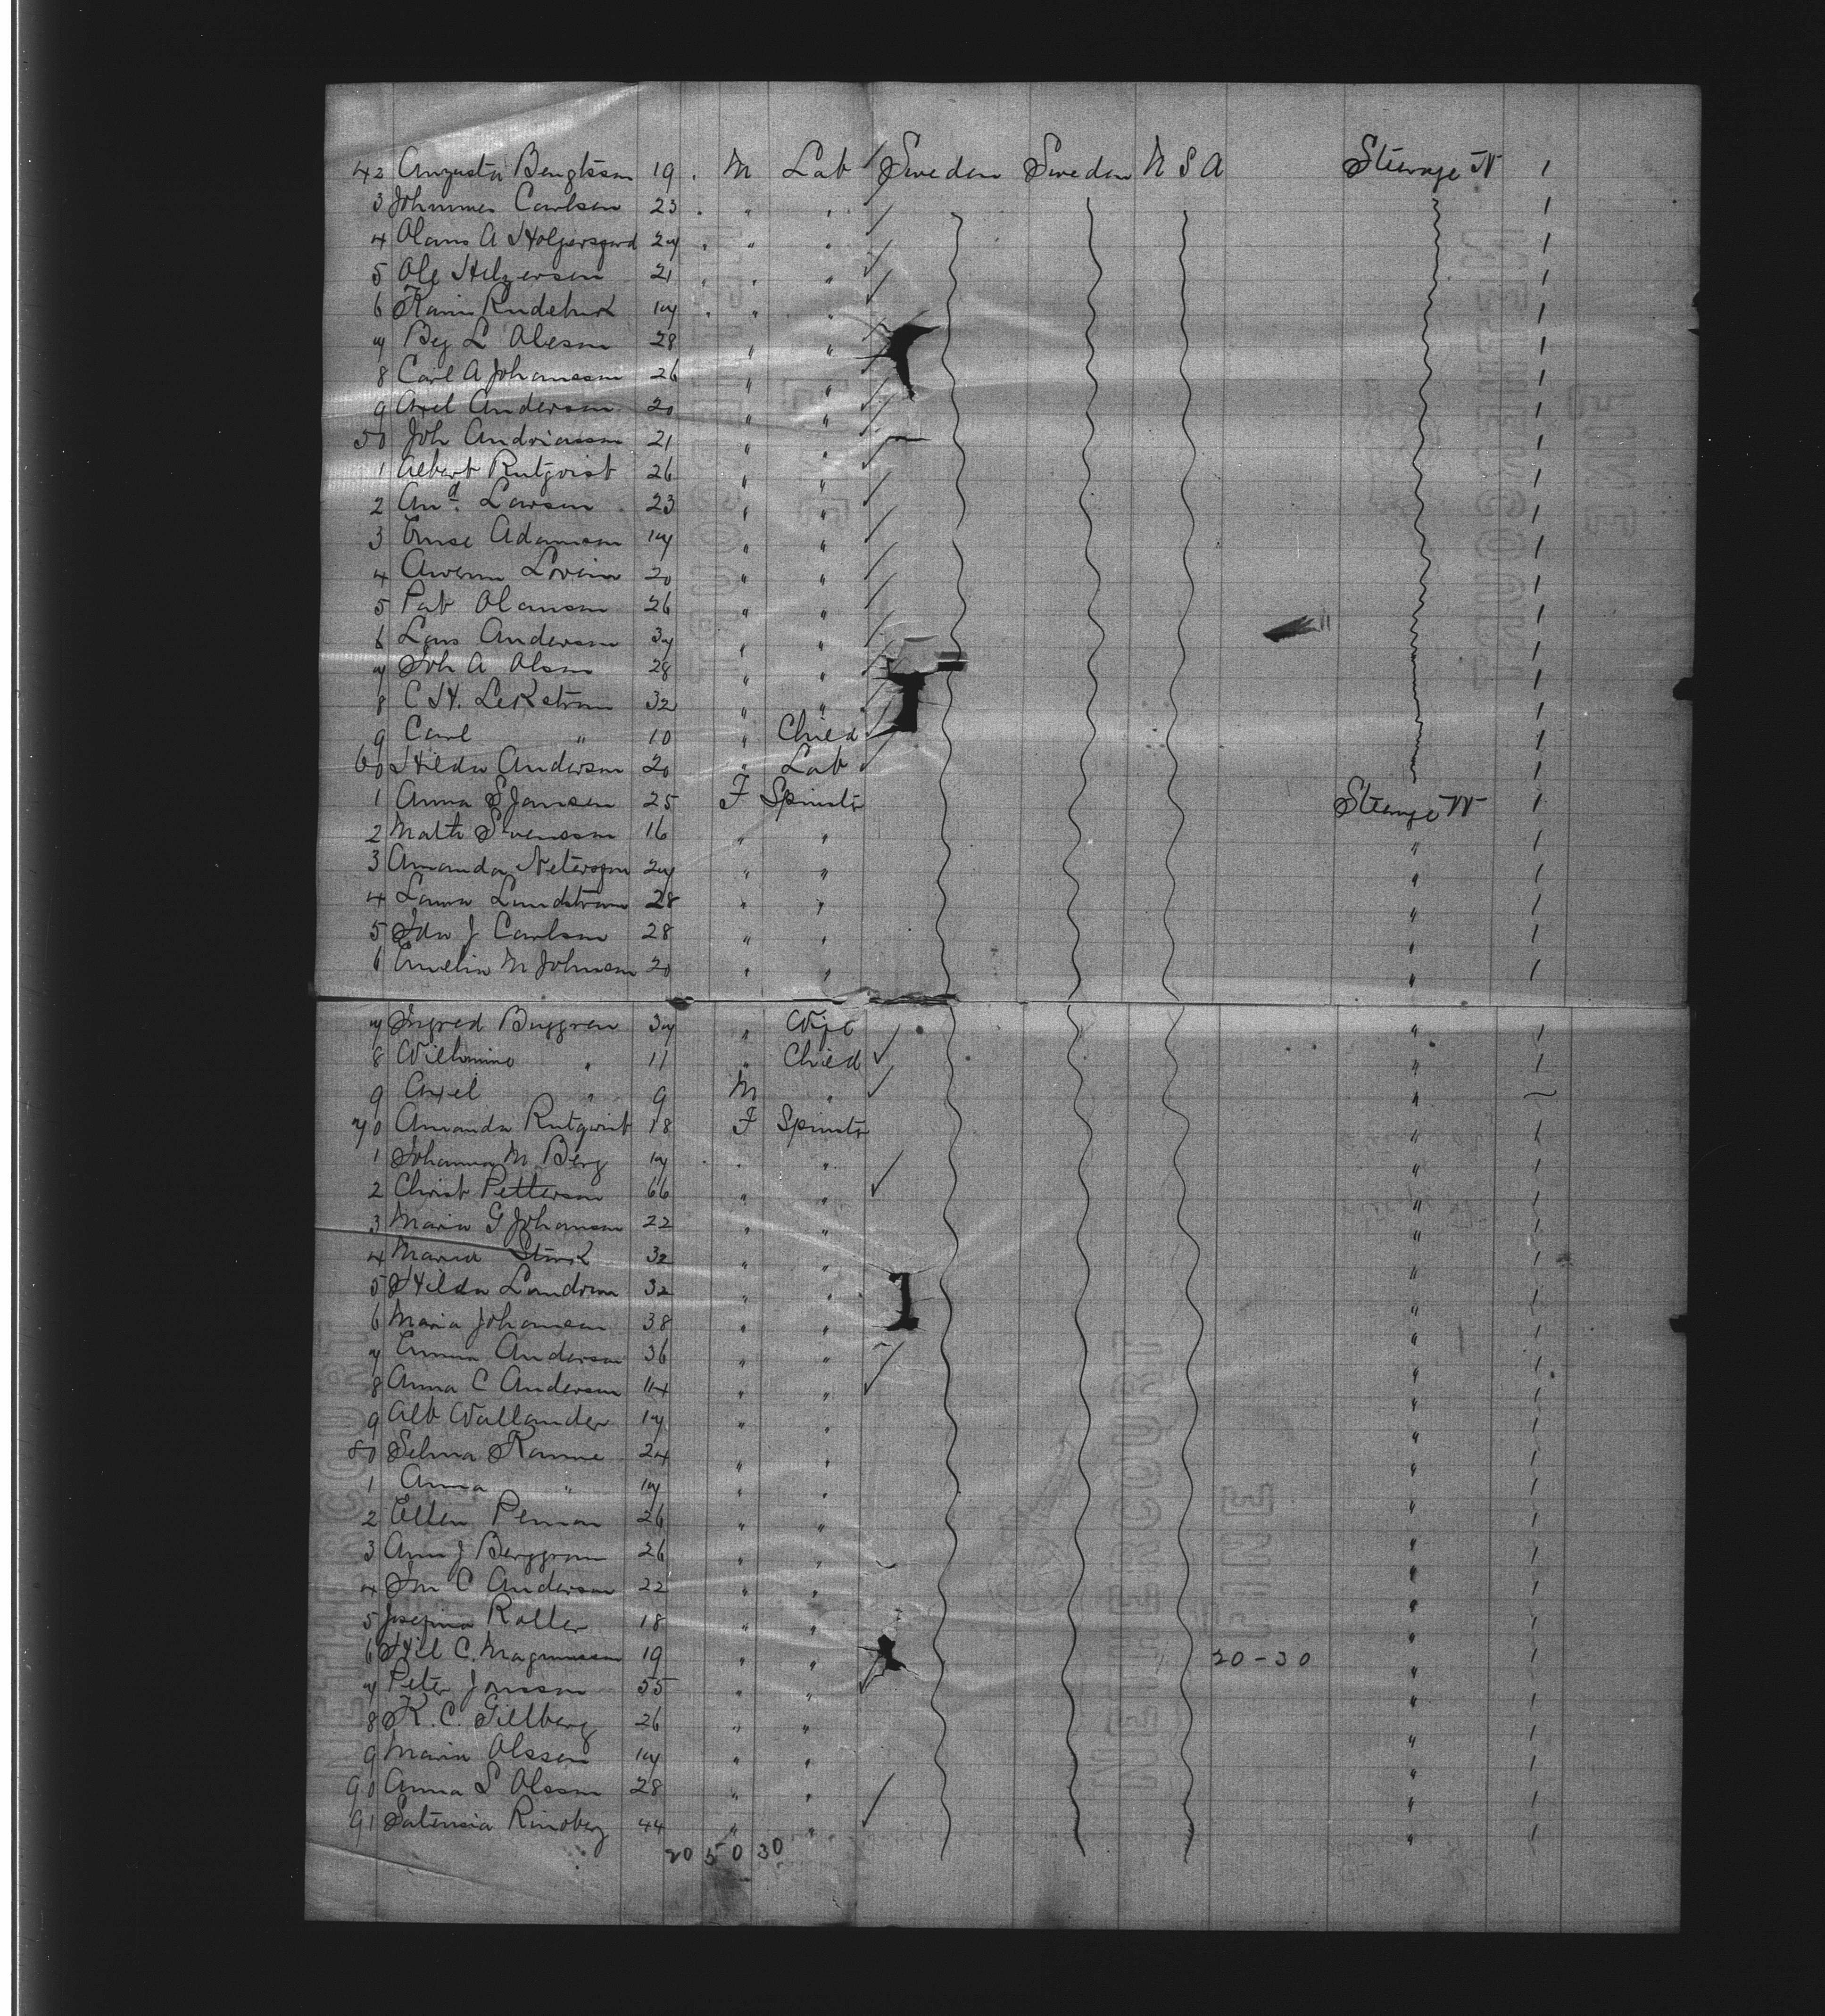 42 Augusta Bengtsson 19 . M Lab Sweden Sweden U S A Steerage N 1
3 Johannes Carlson 23 . " " 1
4 Olaus A Holgersgard 27 . " " 1
5 Ole Helgerson 21 " " 1
6 Rudebick 17 . " " 1
7 L Oleson 28 " " 1
8 Carl A Johansson 26 " " 1
9 Axel Anderson 20 " " 1
50 Joh Andriasson 21 " " 1
1 Albert Rutqvist 26 " " 1
2 And. Larson 23 " " 1
3 Adamson 17 " " 1
4 20 " " 1
5 Olauson 26 " " 1
6 Lars Anderson 37 " " 1
7 Joh A Olsson 28 " " 1
8 C H. Lekstrom 32 " " 1
9 Carl " 10 " Chied 1
60 Hilda Anderson 20 " Lab 1
1 Anna S Jansen 25 F Spinstr Steerage N 1
2 Math Svensson 16 " " " 1
3 Amanda 27 " " " 1
4 Laura Lundstrom 28 " " " 1
5 Ida J Carlson 28 " " " 1
6 Emelia M Johnson 20 " " " 1
7 Ingred Buggren 37 " Wife " 1
8 Wilhmina " 11 " Chied " 1
9 Axel " 9 M " "
70 Amanda Rutqvist 18 F Spinstr " 1
1 Johanna M Berg 17 " " " 1
2 Christ Petterson 66 " " " 1
3 Maria G Johanson 22 " " " 1
4 Maria Stark 32 " " " 1
5 Hilda 32 " " " 1
6 Maria Johanson 38 " " " 1
7 Emma Anderson 36 " " " 1
8 Anna C Anderson " " " 1
9 Alb Wallander 17 " " " 1
80 Selma Kanne 24 " " " 1
1 Anna " 17 " " " 1
2 Ellen Person 26 " " " 1
3 Anna J Berggron 26 " " " 1
4 C Anderson 22 " " " 1
5 Josefina Roller 18 " " " 1
6 Hil C. Magnusson 19 " " 20-30 " 1
7 Peter Jonsson 55 " " " 1
8 K. C. Gillberg 26 " " " 1
9 Maria Olsson 17 " " " 1
90 Anna S Olsson 28 " " " 1
91 Rindberg 44 " " " 1
20 50 30